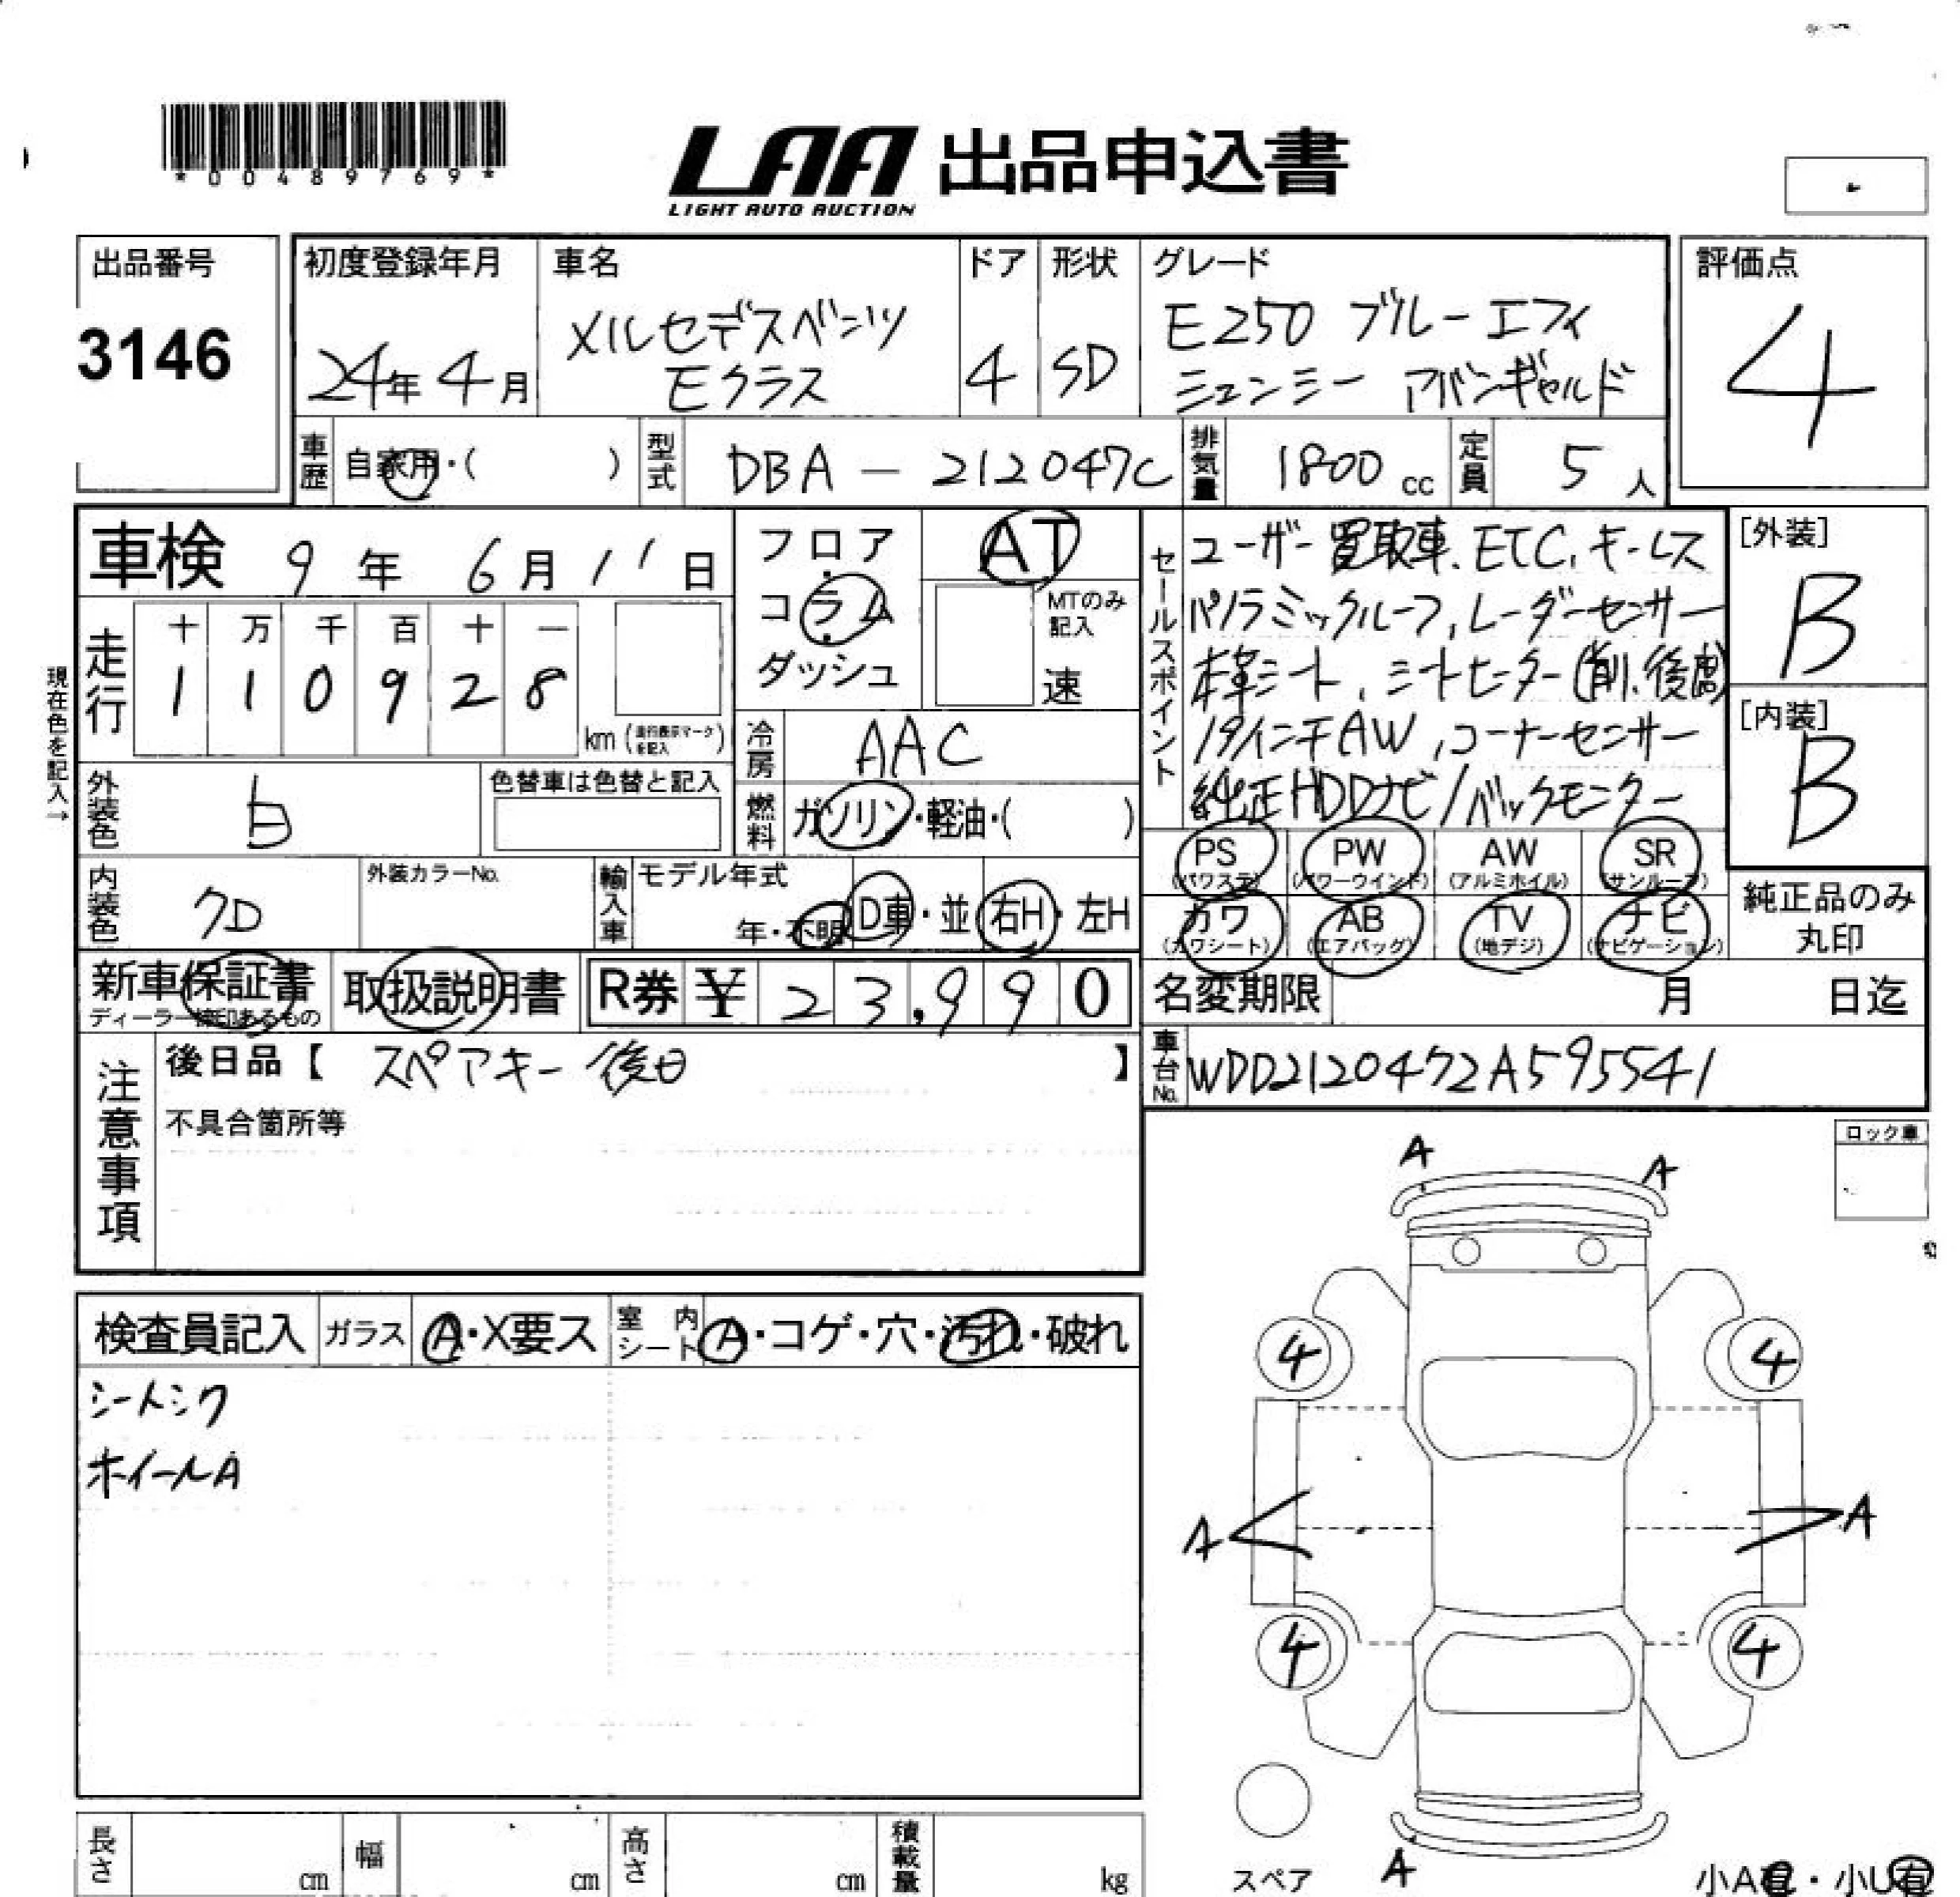 *00489769*
LAA 出品申込書
LIGHT AUTO AUCTION
出品番号
3146
初度登録年月
24年4月
車名
メルセデスベンツ
Eクラス
ドア
4
形状
SD
グレード
E250 ブルーエフィ
シェンシー アバンギャルド
評価点
4
車歴
自家用・( )
型式
DBA-212047C
排気量
1800cc
定員
5人
車検 9年 6月 11日
現在色を記入→
走行
十 万 千 百 十 一
1 1 0 9 2 8
km (走行表示マークを記入)
フロア
コラム
ダッシュ
AT
MTのみ記入
速
冷房
AAC
燃料
ガソリン・軽油・( )
外装色
白
色替車は色替と記入
内装色
クロ
外装カラーNo.
輸入車
モデル年式
年・不明
D車・並
右H・左H
セールスポイント
ユーザー買取車、ETC、キーレス
パノラミックルーフ、レーダーセンサー
本革シート、シートヒーター(前、後席)
19インチAW、コーナーセンサー
純正HDDナビ/バックモニター
[外装]
B
[内装]
B
PS (パワステ)
PW (パワーウインド)
AW (アルミホイル)
SR (サンルーフ)
カワ (カワシート)
AB (エアバッグ)
TV (地デジ)
ナビ (ナビゲーション)
純正品のみ
丸印
新車保証書
ディーラー捺印あるもの
取扱説明書
R券 ¥ 23,990
名変期限 月 日迄
車台No.
WDD2120472A595541
注意事項
後日品【 スペアキー後日 】
不具合箇所等
ロック車
検査員記入
ガラス
A・X要ス
室内シート
A・コゲ・穴・汚れ・破れ
シートシワ
ホイールA
A
A
4
4
A
A
4
4
A
スペア
小A有・小U有
長さ cm
幅 cm
高さ cm
積載量 kg